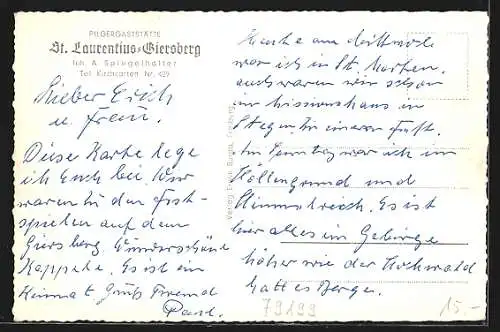 PILGERGASTSTÄTTE
St. Laurentius-Giersberg
Inh. A. Spiegelhalter
Tel. Kirchzarten Nr. 429
Lieber Erich
u. Frau.
Diese Karte lege
ich Euch bei. Wir
waren zu den Fest-
spielen auf dem
Giersberg. Wunderschöne
Es ist ein
Heimat Gruß
Paul.
Heute am
war ich in St. Märgen,
auch waren wir schon
im Missionshaus in
Stegen zu einem Fest.
Am Sonntag war ich im
Höllengrund und
Himmelreich. Es ist
hier alles im Gebirge
höher wie der Hochwald
hat es Berge.
Verlag Erwin Burgth, Freiburg
79199
15.-